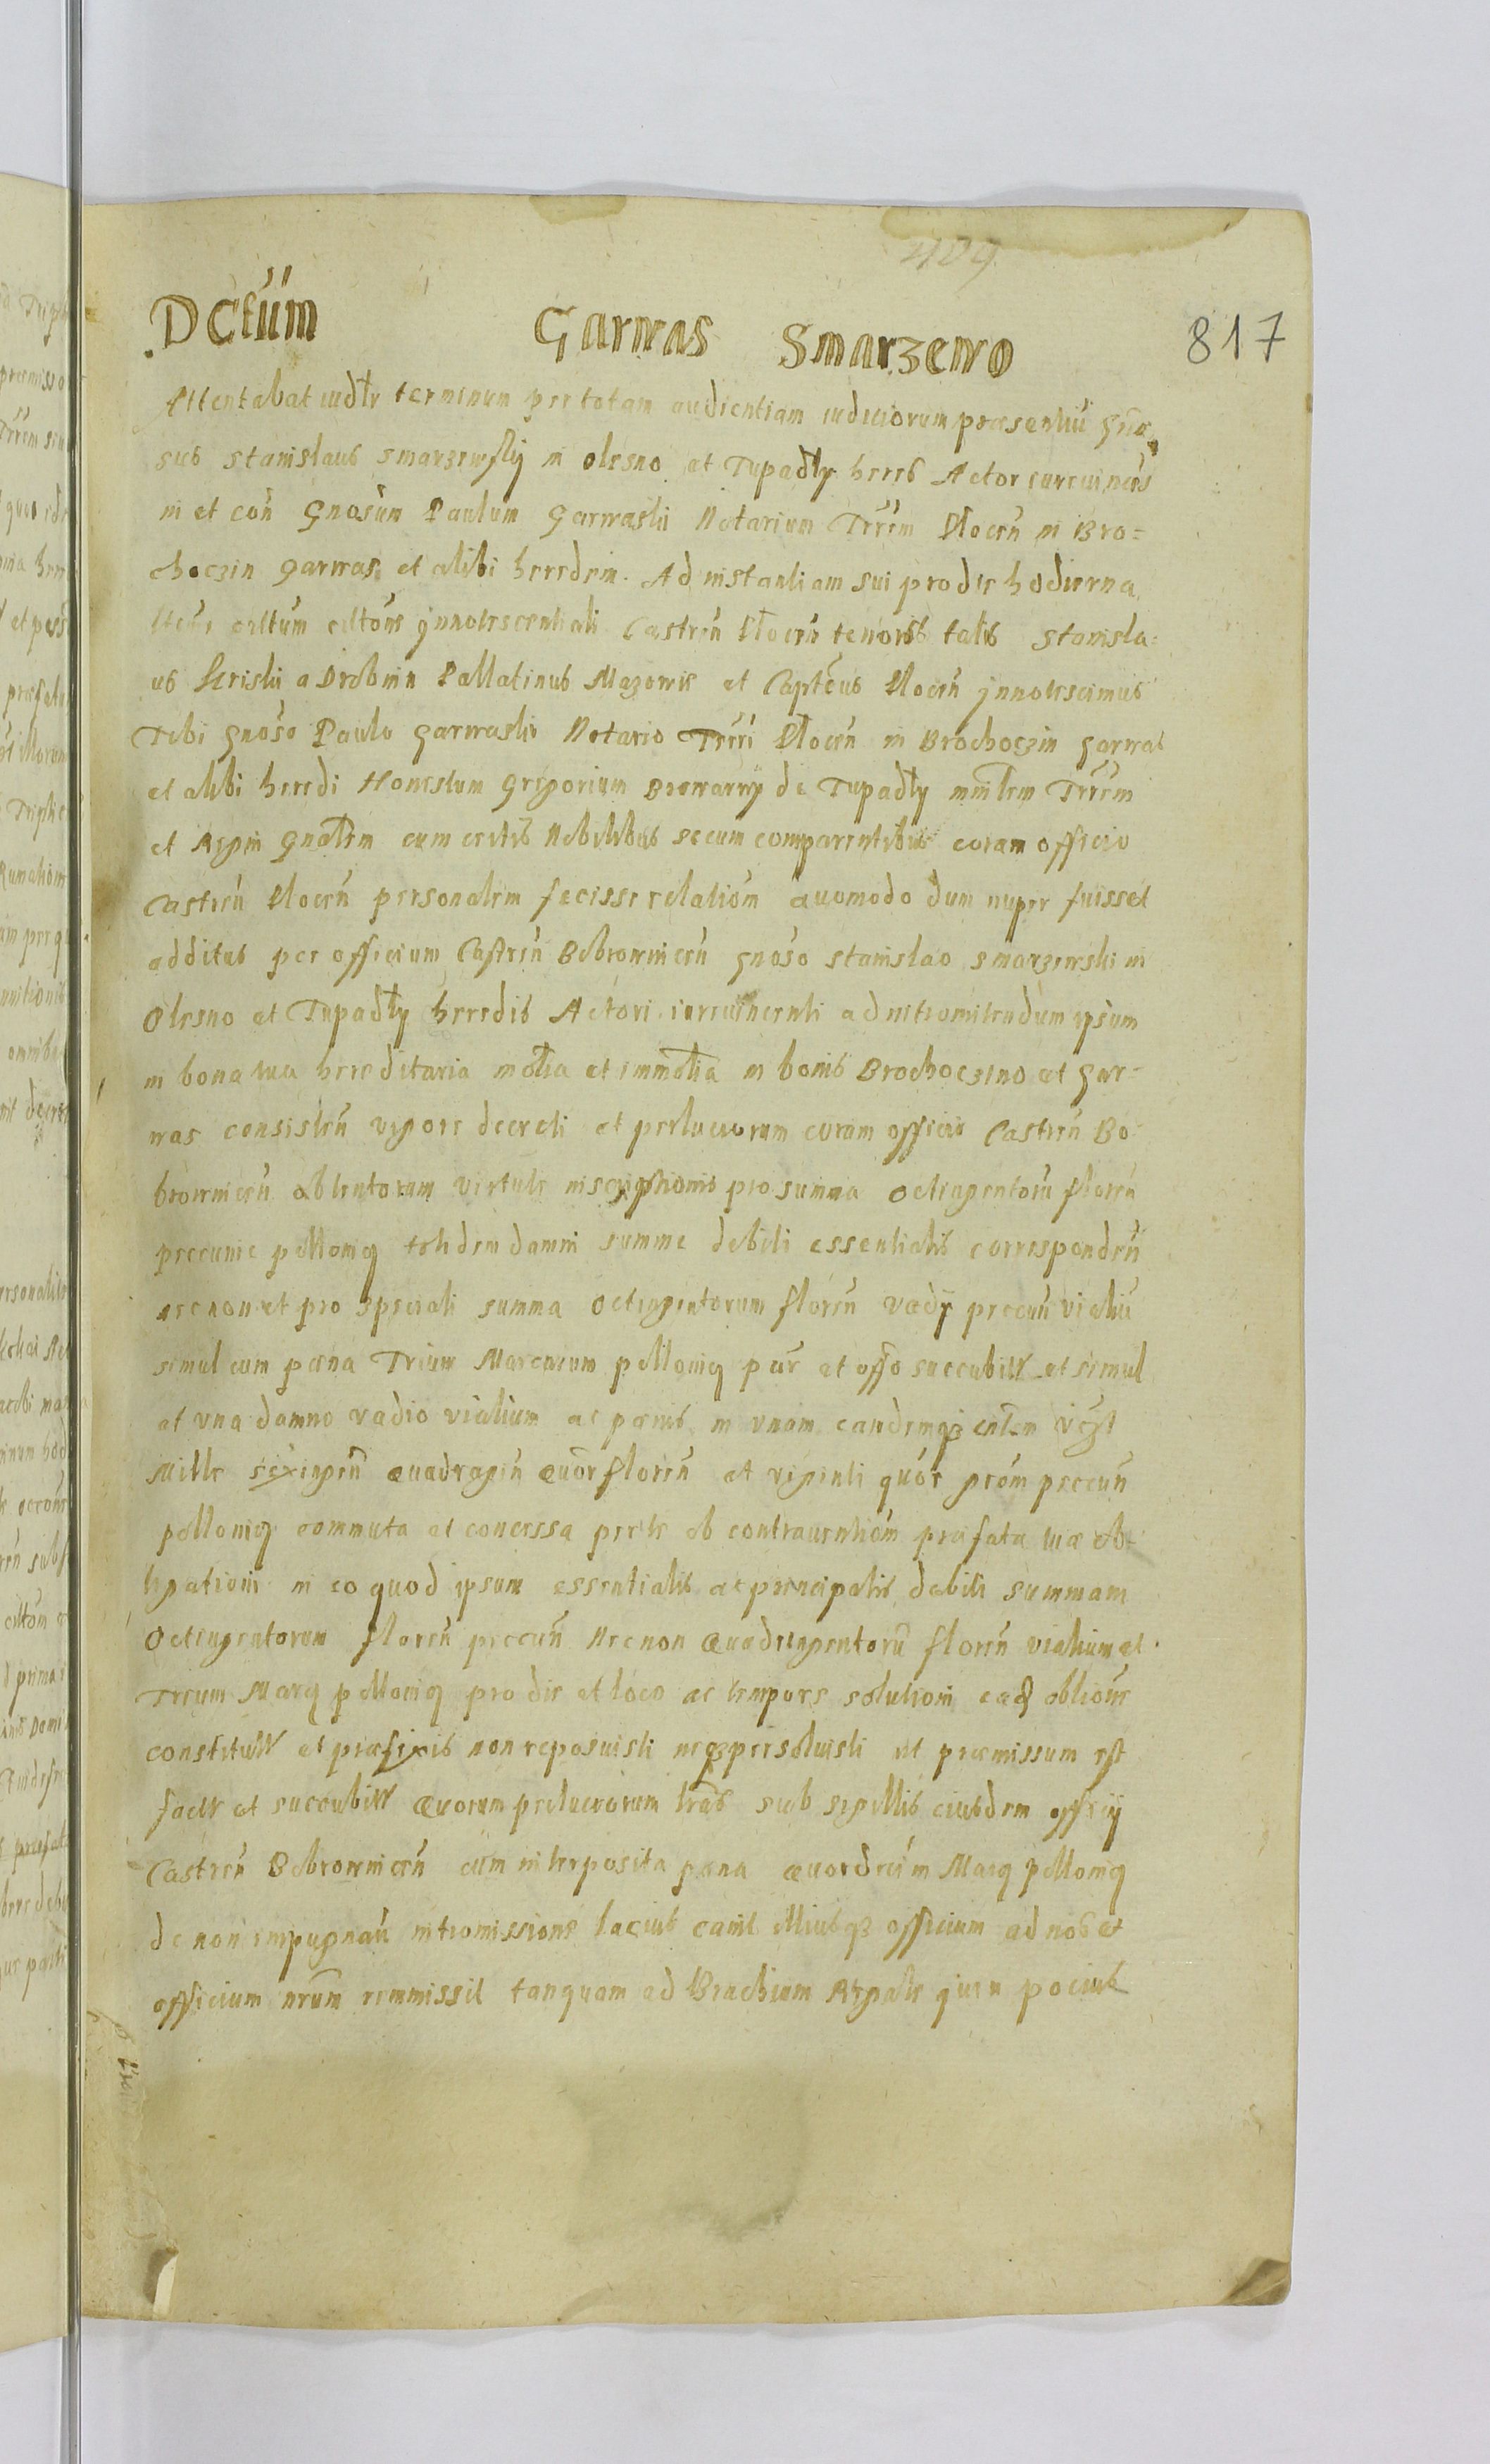 409
817
Dctūm Garwas Smarzewo
Attentabat iudtr terminum per totam audientiam iudiciorum præsentiū Gn̄o
sus Stanislaus Smarzewsky in Olesno et Tupadly heres Actor
in et con̄ Gnosum Paulum Garwaski Notarium Trr̄em Plocen̄ in Bro=
choczin Garwas et alibi heredem. Ad instantiam sui pro die hodierna
citatum innotescentiali Castren̄ Plocen̄ tenoris talis Stanisla=
us Kriski a Drobnin Pallatinus Mazowie et Capteus Plocen̄ innotescimus
Tibi Gnoso Paulo Garwaski Notario Trr̄ri Plocen̄ in Brochoczin Garwas
et alibi heredi Honestum Gregorium Browarny de Tupadly mnlem Trrem
et Regni Gnalem cum certis Nobilibus secum comparentibus coram officio
Castren̄ Plocen̄ personalem fecisse relationem Quomodo dum nuper fuisset
additus per officium Castren̄ Bobrownicen̄ gnoso Stanislao Smarzewski in
Olesno et Tupadly heredis Actori iureuincenti ad intromittendum ipsum
in bona tua hereditaria mobilia et immobilia in bonis Brochoczino et Gar=
was consisten̄ vigore decreti et perlucrorum coram officio Castren̄ Bo=
brownicen̄ obtentorum virtute inscriptionis pro summa Octingentorū floren̄
pecunie pollonicq totidem damni summe debiti essentialis corresponden̄
necnon et pro speciali summa Octingentorum floren̄ vadij pecun̄ vialiū
simul cum pæna Trium Marcarum pollonicq par̄ et offo succubitis et simul
at vna damno vadio vialium ac pænis in vnam eandemq
Mille sexingen̄ Quadragin̄ Quor floren̄ et viginti quor grom pecun̄
pollonicq commuta et concessa per te ob contrauentiom præfata tuæ ob-
ligationi in eo quod ipsum essentialis ac principalis debiti summam
Octingentorum floren̄ pecun̄ Necnon Quadringentorū floren̄ vialium et
Trium Marcq pollonicq pro die et loco ac tempore solutioni obliom̄
constitutis et præfixis non reposuisti neq persoluisti ut præmissum est
factis et succubitis Quorum perlucrorum tras sub sigillis eiusdem officij
Castren̄ Bobrownicen̄ cum interposita pæna Quordecim Marcq pollonicq
de non impugnan̄ intromissione lacius canit Illiusq officium ad nos et
officium nrum remmissit tanquam ad Brachium Regale pocius